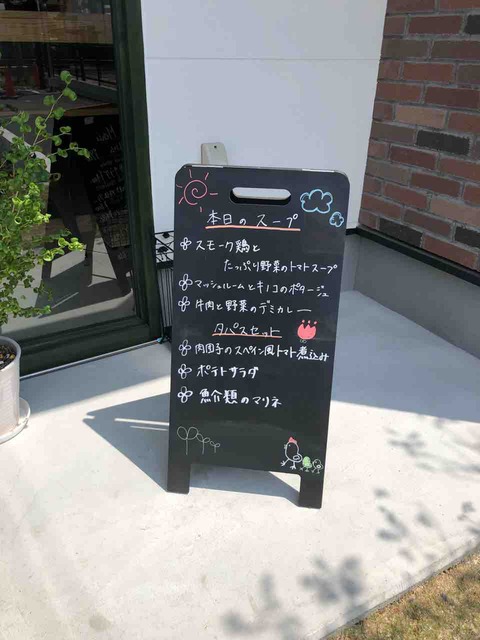 本日のスープ
スモーク鶏と
たっぷり野菜のトマトスープ
マッシュルームとキノコのポタージュ
牛肉と野菜のデミカレー
タパスセット
肉団子のスペイン風トマト煮込み
ポテトサラダ
魚介類のマリネ